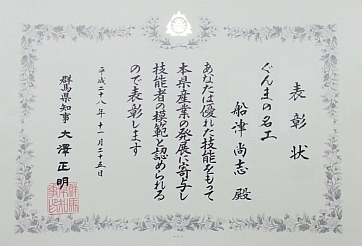 表彰状
ぐんまの名工
船津尚志 殿
あなたは優れた技能をもって
本県産業の発展に寄与し
技能者の模範と認められる
ので表彰します
平成二十八年十一月二十五日
群馬県知事 大澤正明